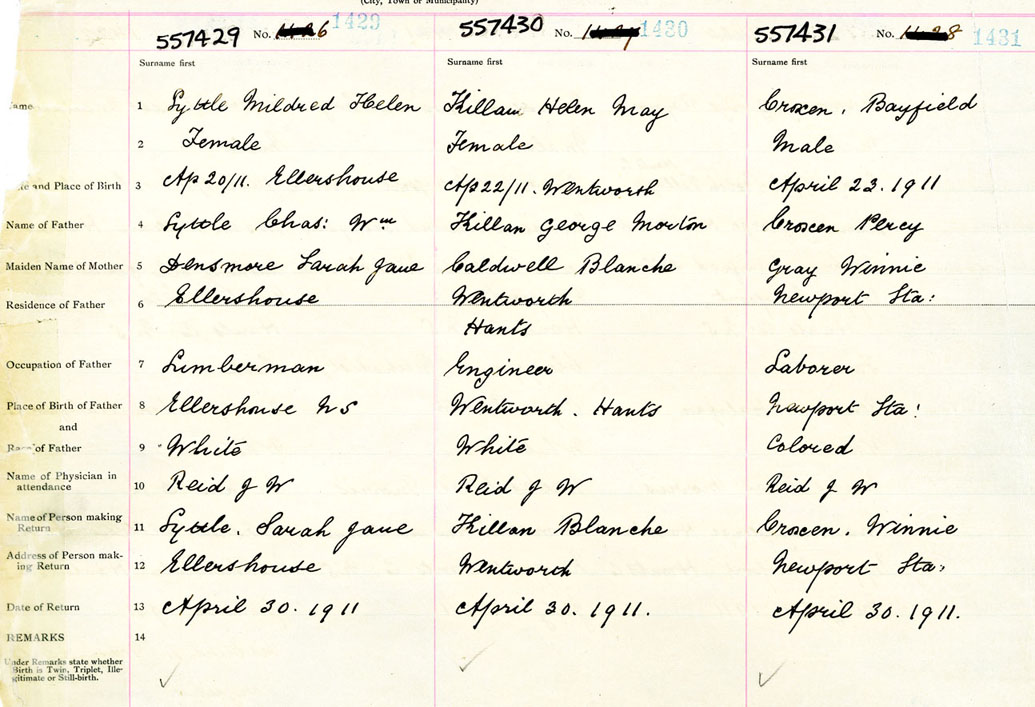 (City, Town or Municipality)
557429 No. 1426 1429 557430 No. 1427 1430 557431 No. 1428 1431
Surname first Surname first Surname first
ame 1 Lyttle Mildred Helen Killam Helen May Croxen, Bayfield
2 Female Female Male
and Place of Birth 3 Ap 20/11. Ellershouse Ap 22/11. Wentworth April 23. 1911
Name of Father 4 Lyttle Chas: Wm Killan George Morton Croxen Percy
Maiden Name of Mother 5 Densmore Sarah Jane Caldwell Blanche Gray Winnie
Residence of Father 6 Ellershouse Wentworth Newport Sta:
Hants
Occupation of Father 7 Lumberman Engineer Laborer
Place of Birth of Father 8 Ellershouse NS Wentworth. Hants Newport Sta:
and
Race of Father 9 White White Colored
Name of Physician in
attendance 10 Reid J W Reid J W Reid J W
Name of Person making
Return 11 Lyttle. Sarah Jane Killan Blanche Croxen. Winnie
Address of Person mak-
ing Return 12 Ellershouse Wentworth Newport Sta:
Date of Return 13 April 30. 1911 April 30. 1911. April 30. 1911.
REMARKS 14
Under Remarks state whether
Birth is Twin, Triplet, Ille-
gitimate or Still-birth.